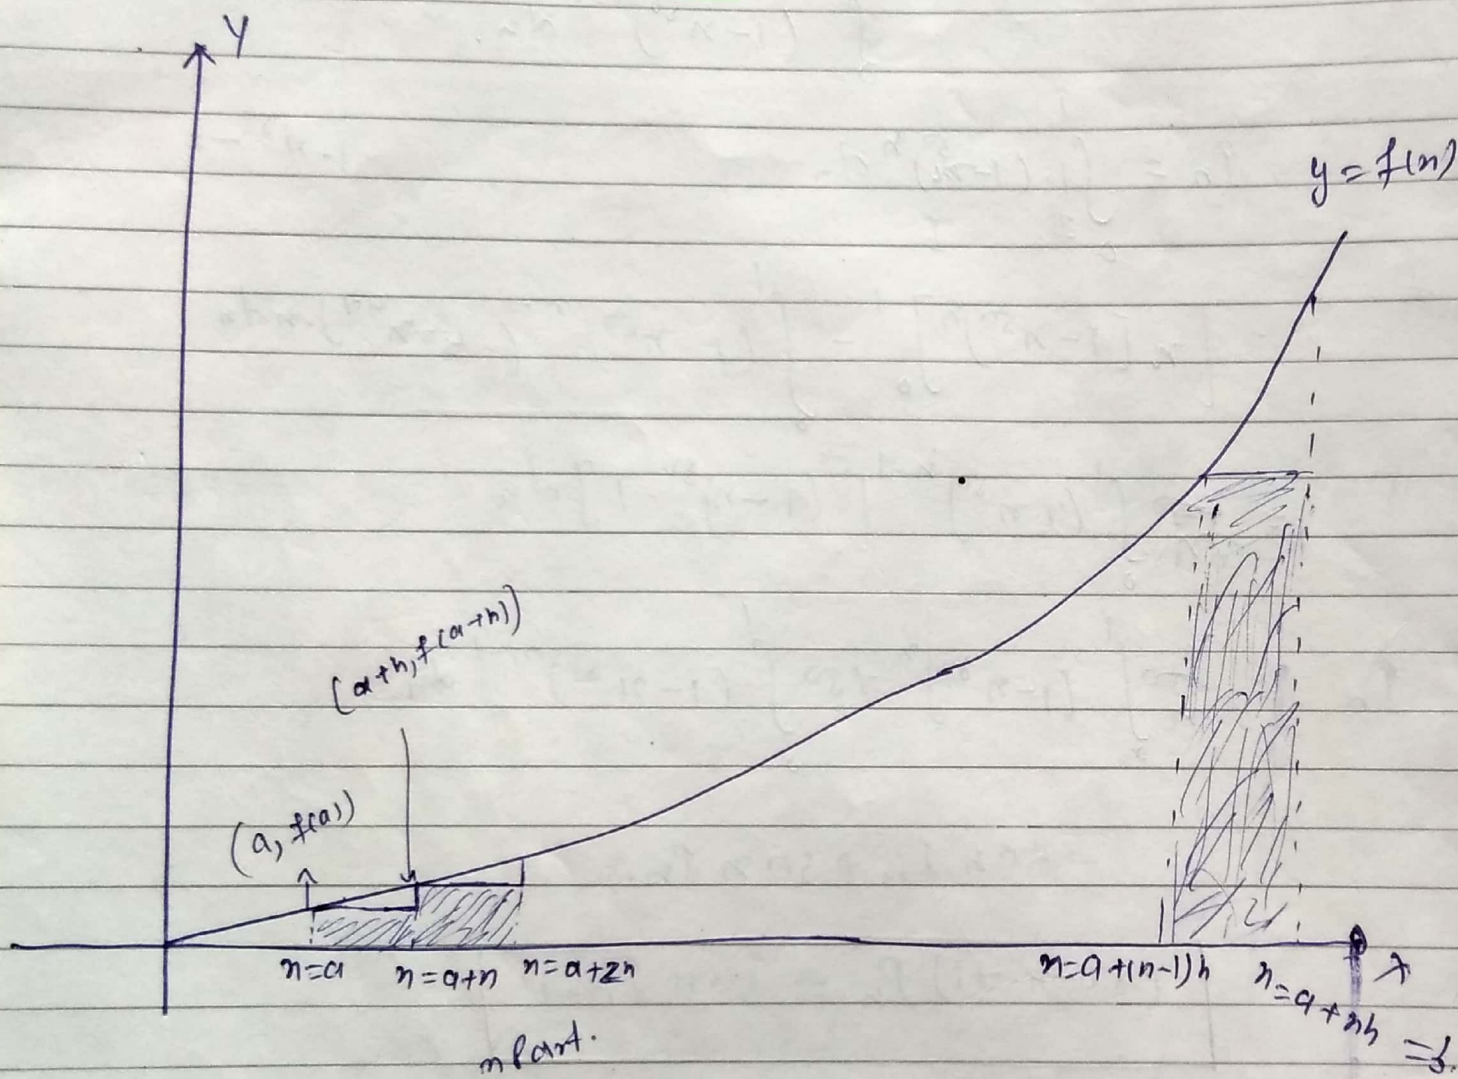 Y
y = f(x)
(a+h, f(a+h))
(a, f(a))
x=a
x=a+h
x=a+2h
x=a+(n-1)h
x=a+nh
=b.
X
n Part.